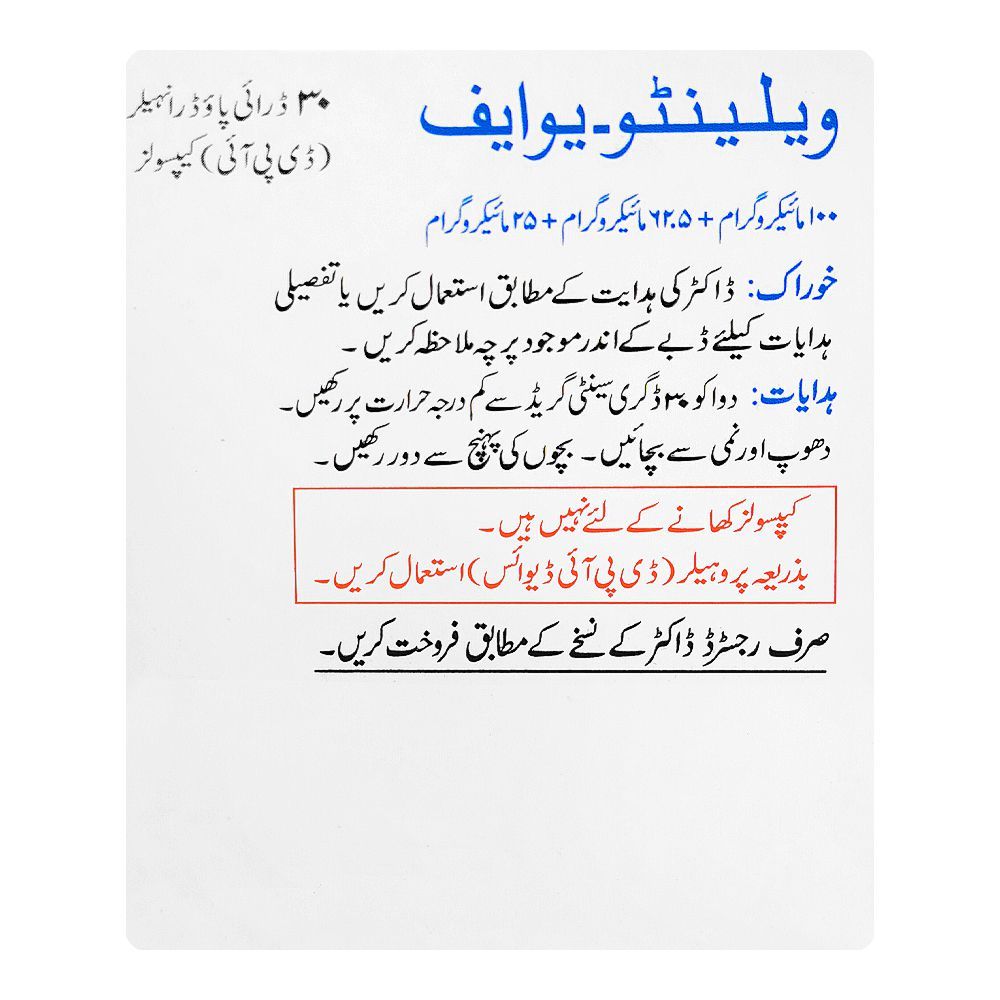 ویلینٹو-یو ایف
۳۰ ڈرائی پاؤڈر انہیلر
(ڈی پی آئی) کیپسولز
۱۰۰ مائیکروگرام + ۶۲.۵ مائیکروگرام + ۲۵ مائیکروگرام
خوراک: ڈاکٹر کی ہدایت کے مطابق استعمال کریں یا تفصیلی
ہدایات کیلئے ڈبے کے اندر موجود پرچہ ملاحظہ کریں ۔
ہدایات: دوا کو ۳۰ ڈگری سینٹی گریڈ سے کم درجہ حرارت پر رکھیں۔
دھوپ اور نمی سے بچائیں ۔ بچوں کی پہنچ سے دور رکھیں ۔
کیپسولز کھانے کے لئے نہیں ہیں ۔
بذریعہ پروہیلر (ڈی پی آئی ڈیوائس) استعمال کریں ۔
صرف رجسٹرڈ ڈاکٹر کے نسخے کے مطابق فروخت کریں ۔